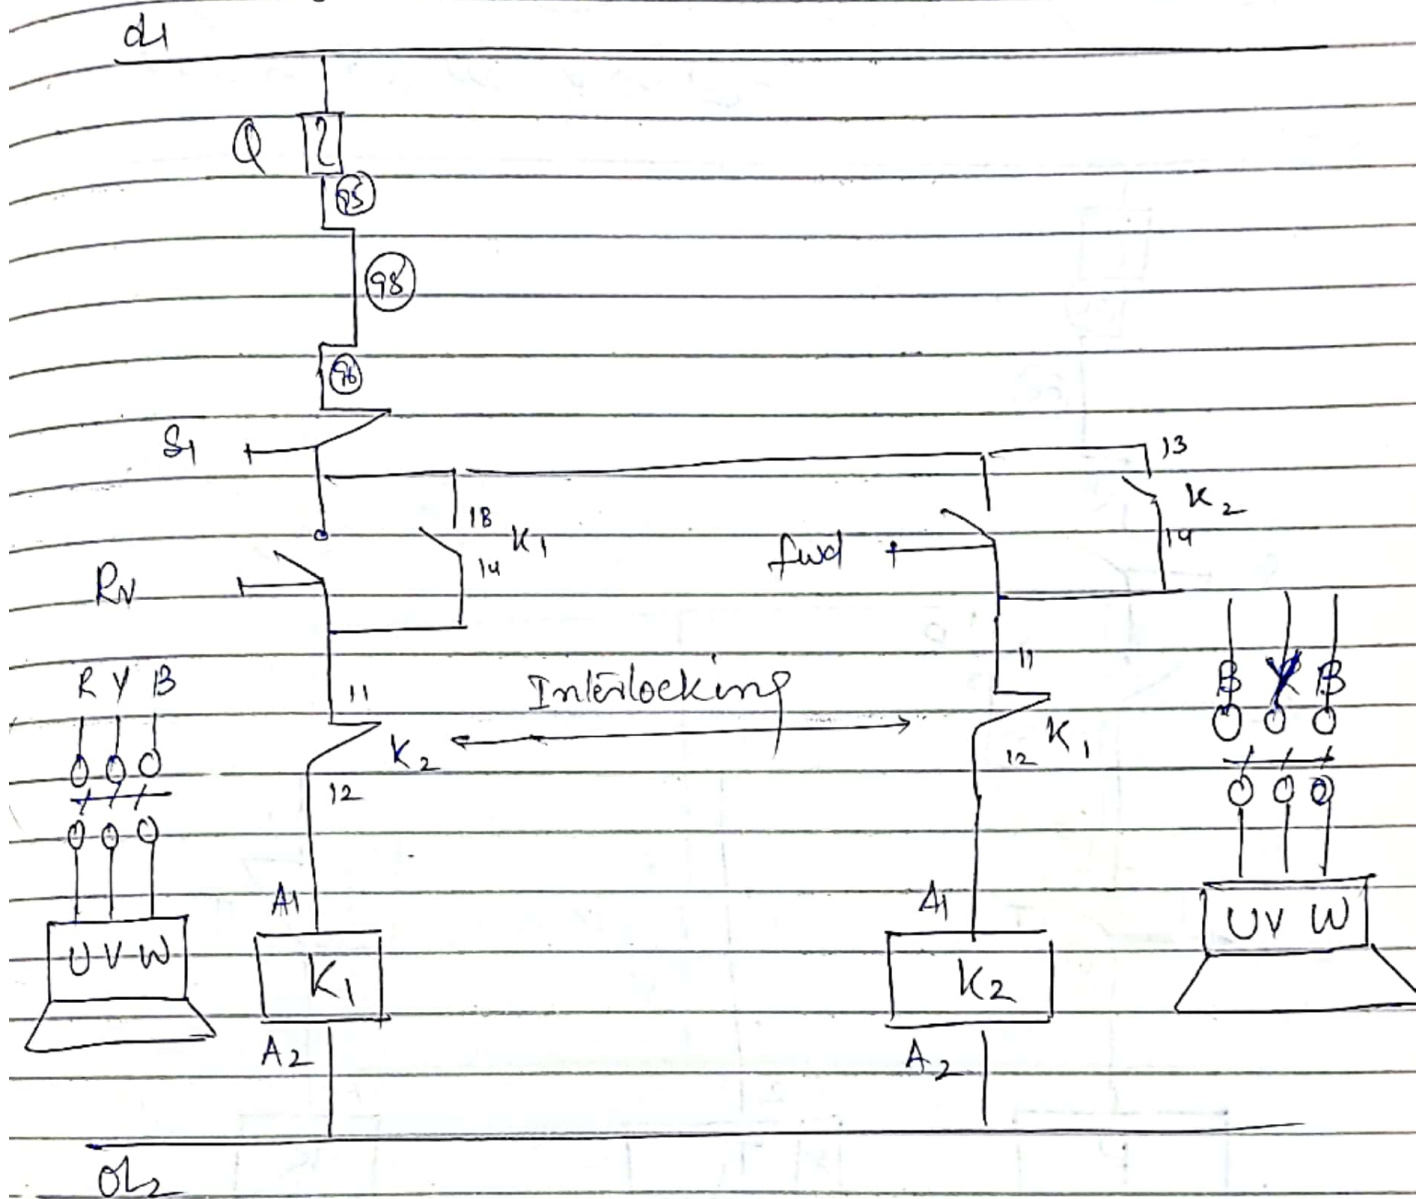 Q
2
95
98
96
S1
13
K2
14
13
K1
14
fwd
Rv
R Y B
11
Interlocking
11
B Y B
K2
12
K1
12
A1
A1
U V W
K1
K2
U V W
A2
A2
OL2